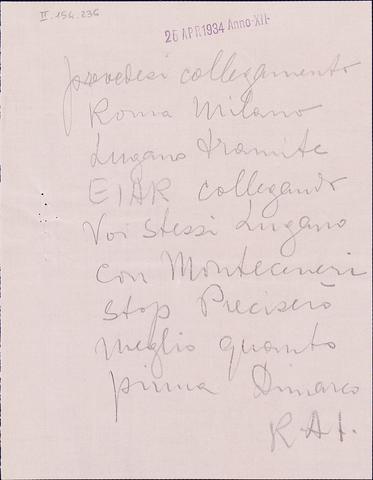 II.154.236
26 APR 1934 Anno-XII-
provedesi collegamento
Roma Milano
Lugano tramite
EIAR collegando
Voi stessi Lugano
con Monteceneri
stop Preciserò
meglio quanto
prima Dimarco